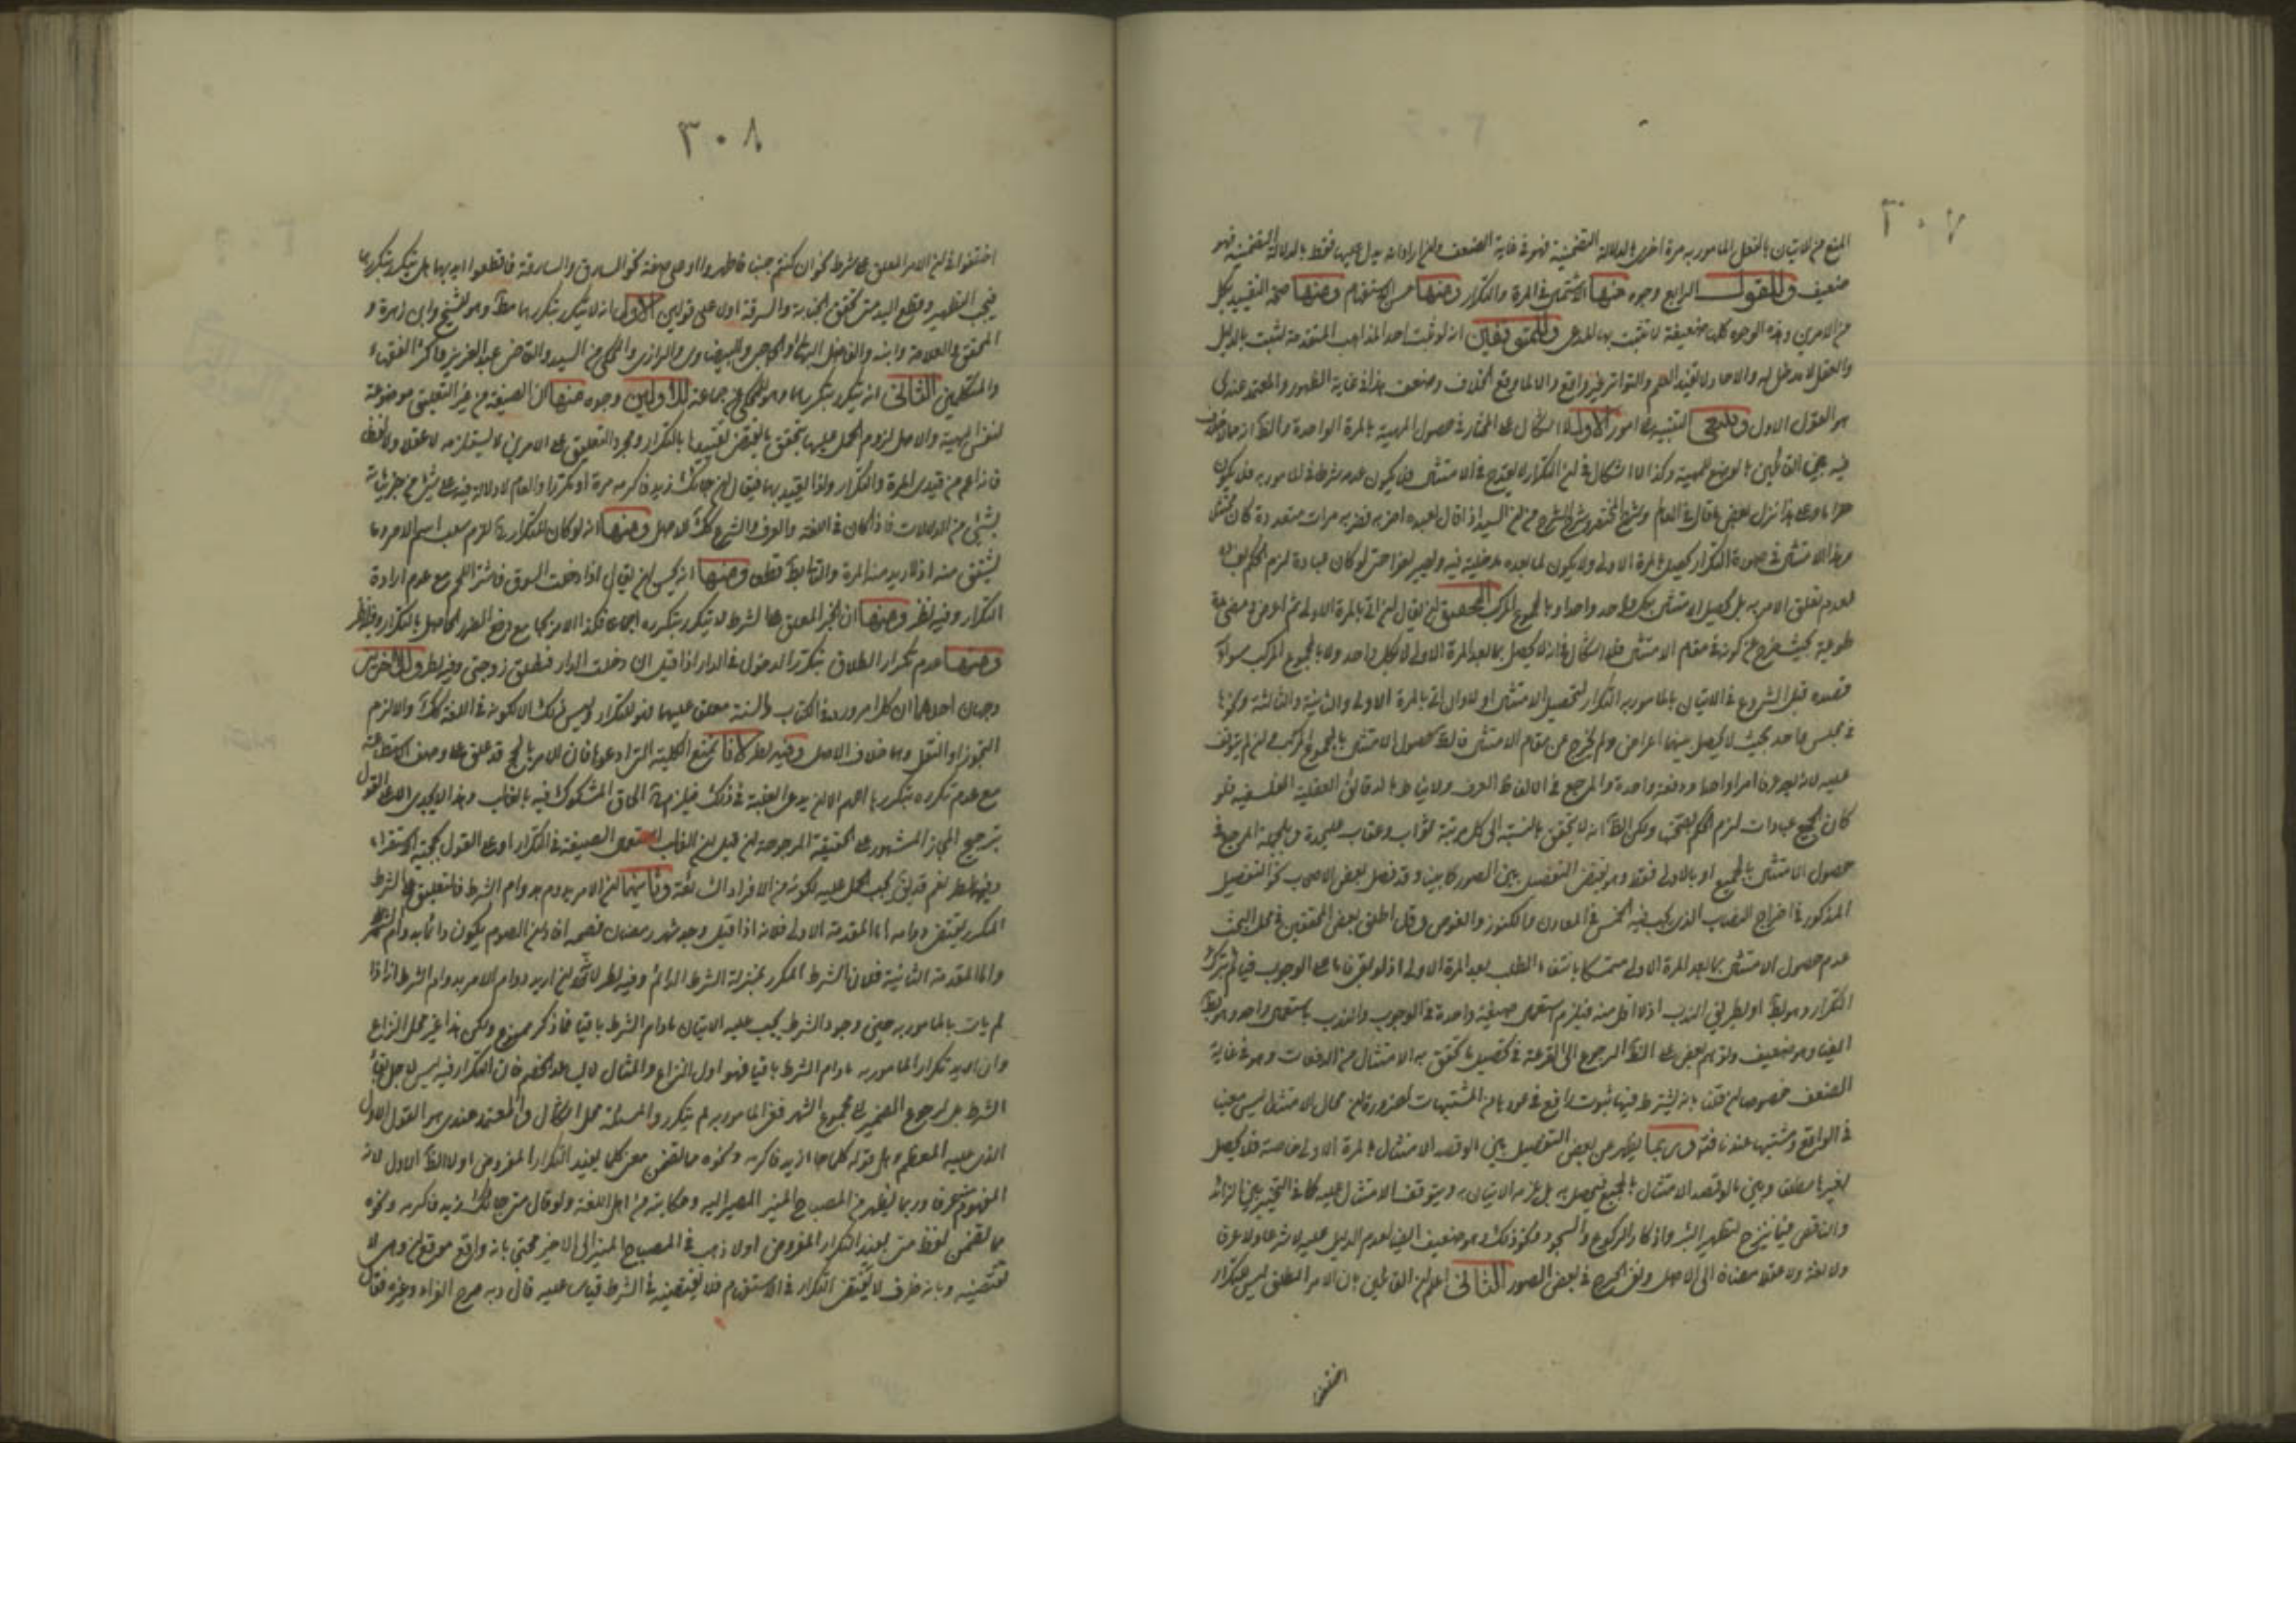 ٣٠٧
المنع من الاتيان بالفعل المامور به مرة اخرى بالدلالة التضمنية فهو في غاية الضعف وان اراد انه يدل عليها فقط بالدلالة التضمنية فهو
ضعيف وللقول الرابع وجوه منها الاستعمال في المرة والتكرار ومنها حسن الاستفهام ومنها صحة التقييد بكل
من الامرين وهذه الوجوه كلها ضعيفة لا تثبت بها المدعى وللمتوقفين انه لو ثبت احد المذاهب المتقدمة لثبت بالدليل
والعقل لا مدخل له والاحاد لا يفيد العلم والتواتر غير واقع والا لما وقع الخلاف وضعف هذا في غاية الظهور والمعتمد عندي
هو القول الاول وينبغي التنبيه على امور الاول لا اشكال على المختار في حصول المهية بالمرة الواحدة والظ انه لا خلاف
فيه بين القائلين بالوضع للمهية وكذا لا اشكال في ان التكرار لا يقدح في الامتثال فلا يكون عدمه شرطا في المامور به فلا يكون
حراما وعلى هذا نزل بعض ما قال في العالم وشرح المختصر وشرح الشرح من ان السيد اذا قال لعبده اضربه فضربه مرات متعددة كان ممتثلا
وهذا الامتثال في صورة التكرار يحصل بالمرة الاولى ولا يكون لما بعده مدخلية فيه ويصير لغوا حتى لو كان عبادة لزم الحكم بفساده
لعدم تعلق الامر به بل يحصل الامتثال بكل واحد واحد او بالمجموع المركب التحقيق ان يقال ان اتى بالمرة الاولى ثم اعرض ومضى مدة
طويلة بحيث خرج عن كونه في مقام الامتثال فلا اشكال في انه لا يحصل بما بعد المرة الاولى لا بكل واحد ولا بالمجموع المركب سواء
قصده قبل الشروع في الاتيان بالمامور به التكرار لتحصيل الامتثال او لا وان اتى بالمرة الاولى والثانية والثالثة ونحوها
في مجلس واحد بحيث لا يحصل بينها اعراض ولم يخرج عن مقام الامتثال فالظ حصول الامتثال بالمجموع المركب
عليه لانه يعد عرفا امرا واحدا ودفعة واحدة والمرجع في الالفاظ العرف ولا يناط بالدقائق العقلية الفلسفية فلو
كان الجميع عبادات لزم الحكم بصحتها ولكن الظ انه لا يتحقق بالنسبة الى كل مرتبة ثواب وعقاب عليحدة وبالجملة المرجع في
حصول الامتثال بالجميع او بالاولى فقط وهو يقتضي التفصيل بين الصور كما بينا وقد فصل بعض الاصحاب نحو التفصيل
المذكور في اخراج النصاب الذي يجب فيه الخمس في المعادن والكنوز والغوص وقد اطلق بعض المحققين في محل البحث
عدم حصول الامتثال بما بعد المرة الاولى متمسكا بانتفاء الطلب بعد المرة الاولى اذ لو بقي فاما على الوجوب فياثم بترك
التكرار وهو بط او بطريق الندب اذ لا اقل منه فيلزم استعمال صيغة واحدة في الوجوب والندب باستعمال واحد وهو بط
ايضا وهو ضعيف وتوهم بعض على الظ الرجوع الى القرعة في تحصيل ما يتحقق به الامتثال من الدفعات وهو في غاية
الضعف خصوصا ان قلنا بانه يشترط فيها ثبوت واقع في مورد ما من المشتبهات لضرورة ان محال الامتثال ليس معينا
في الواقع ومشتبها عندنا فتم وربما يظهر من بعض التفصيل بين ما لو قصد الامتثال بالمرة الاولى خاصة فلا يحصل
بغيرها مطلقا وبين ما لو قصد الامتثال بالجميع فيحصل به بل يلزمه الاتيان به ويتوقف الامتثال عليه كما في التخيير بين الزائد
والناقص فيما ينزح لتطهير البئر واذكار الركوع والسجود ونحو ذلك وهو ضعيف ايضا لعدم الدليل عليه لا شرعا ولا عرفا
ولا لغة ولا عقلا مضافا الى الاصل ولزوم الحرج في بعض الصور الثاني اعلم ان القائلين بان الامر المطلق ليس للتكرار
اختلفوا
٣٠٨
اختلفوا في ان الامر المعلق على شرط نحو ان كنتم جنبا فاطهروا او على صفة نحو السارق والسارقة فاقطعوا ايديهما هل يتكرر بتكررهما
فيجب التطهير وقطع اليد متى تحقق الجنابة والسرقة او لا على قولين الاول انه لا يتكرر بتكررهما مطلقا وهو للشيخ وابن زهرة و
المحقق والعلامة وابنه والفاضل البهائي والحاجبي والبيضاوي والرازي والمحكي عن السيد والقاضي عبد العزيز واكثر الفقهاء
والمتكلمين الثاني انه يتكرر بتكررهما وهو المحكي عن جماعة للاولين وجوه منها ان الصيغة من غير التعليق موضوعة
لنفس المهية والاصل لزوم الحمل عليها حتى يتحقق ما يقتضي تقييدها بالتكرار ومجرد التعليق على الامرين لا يستلزمه لا عقلا ولا لفظا
فانه اعم من قيدي المرة والتكرار ولذا يقيد بهما فيقال ان جاءك زيد فاكرمه مرة او مكررا والعام لا دلالة فيه على شيء من جزئياته
بشيء من الدلالات فاذا كان في اللغة والعرف والشرع كك للاصل ومنها انه لو كان للتكرار لزم سلب اسم الامر وما
يشتق منه اذا اريد منه المرة والتالي بط قطعا ومنها انه يحسن ان يقال اذا دخلت السوق فاشتر اللحم مع عدم ارادة
التكرار وفيه نظر ومنها ان الخبر المعلق على الشرط لا يتكرر بتكرره اجماعا فكذا الامر بجامع دفع الضرر الحاصل بالتكرار وفيه نظر
ومنها عدم تكرار الطلاق بتكرر الدخول في الدار اذا قيل ان دخلت الدار فطلق زوجتي وفيه نظر وللاخرين
وجهان احدهما ان كل امر ورد في الكتاب والسنة معلق عليهما فهو للتكرار وليس ذلك الا لكونه في اللغة كك والا لزم
التجوز او النقل وهما خلاف الاصل وفيه نظر لانا نمنع الكلية التي ادعوها فان الامر بالحج قد علق على وصف الاستطاعة
مع عدم تكرره بتكررها اللهم الا ان يدعى الغلبة في ذلك فيلزم ح الحاق المشكوك فيه بالغالب وهذا لا يجدي الا على القول
بترجيح المجاز المشهور على الحقيقة المرجوحة ان قيل ان الغالب استعمال الصيغة في التكرار او على القول بحجية الاستقراء
وفيهما نظر نعم قد يقال يجب الحمل عليه لكونه من الافراد الشائعة وثانيهما ان الامر يدوم بدوام الشرط فالتعليق على الشرط
المكرر يقتضي دوامه اما المقدمة الاولى فلانه اذا قيل وجد شهر رمضان فصمه افاد ان الصوم يكون دائما بدوام الشهر
واما المقدمة الثانية فلان الشرط المكرر بمنزلة الشرط الدائم وفيه نظر لانه ان اريد بدوام الامر بدوام الشرط انه اذا
لم يات بالمامور به حين وجود الشرط يجب عليه الاتيان ما دام الشرط باقيا فما ذكر مم ولكن هذا غير محل النزاع
وان اريد تكرار المامور به ما دام الشرط باقيا فهو اول النزاع والمثال لا يساعد الخصم فان التكرار فيه ليس لاجل بقاء
الشرط بل لرجوع الضمير الى مجموع الشهر ففي المامور به لم يتكرر والمسئلة محل اشكال والمعتمد عندي هو القول الاول
الذي عليه المعظم وهل قوله كلما جاء زيد فاكرمه ونحوه مما تضمن معنى كلما يفيد التكرار المفروض او لا الظ الاول لانه
المفهوم عرفا وربما يظهر من المصباح المنير المصير اليه وحكايته عن اهل اللغة ولو قال متى جاءك زيد فاكرمه ونحوه
مما تضمن لفظ متى يفيد التكرار المفروض او لا ذهب في المصباح المنير الى الاخير محتجا بانه واقع موقع ان وهي لا
تقتضيه وبانه ظرف لا يقتضي التكرار في الاستفهام فلا يقتضيه في الشرط قياسا عليه قال وبه صرح الفراء وغيره فقال